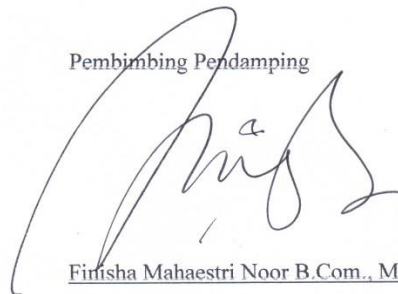 Pembimbing Pendamping
Finisha Mahaestri Noor B.Com., M